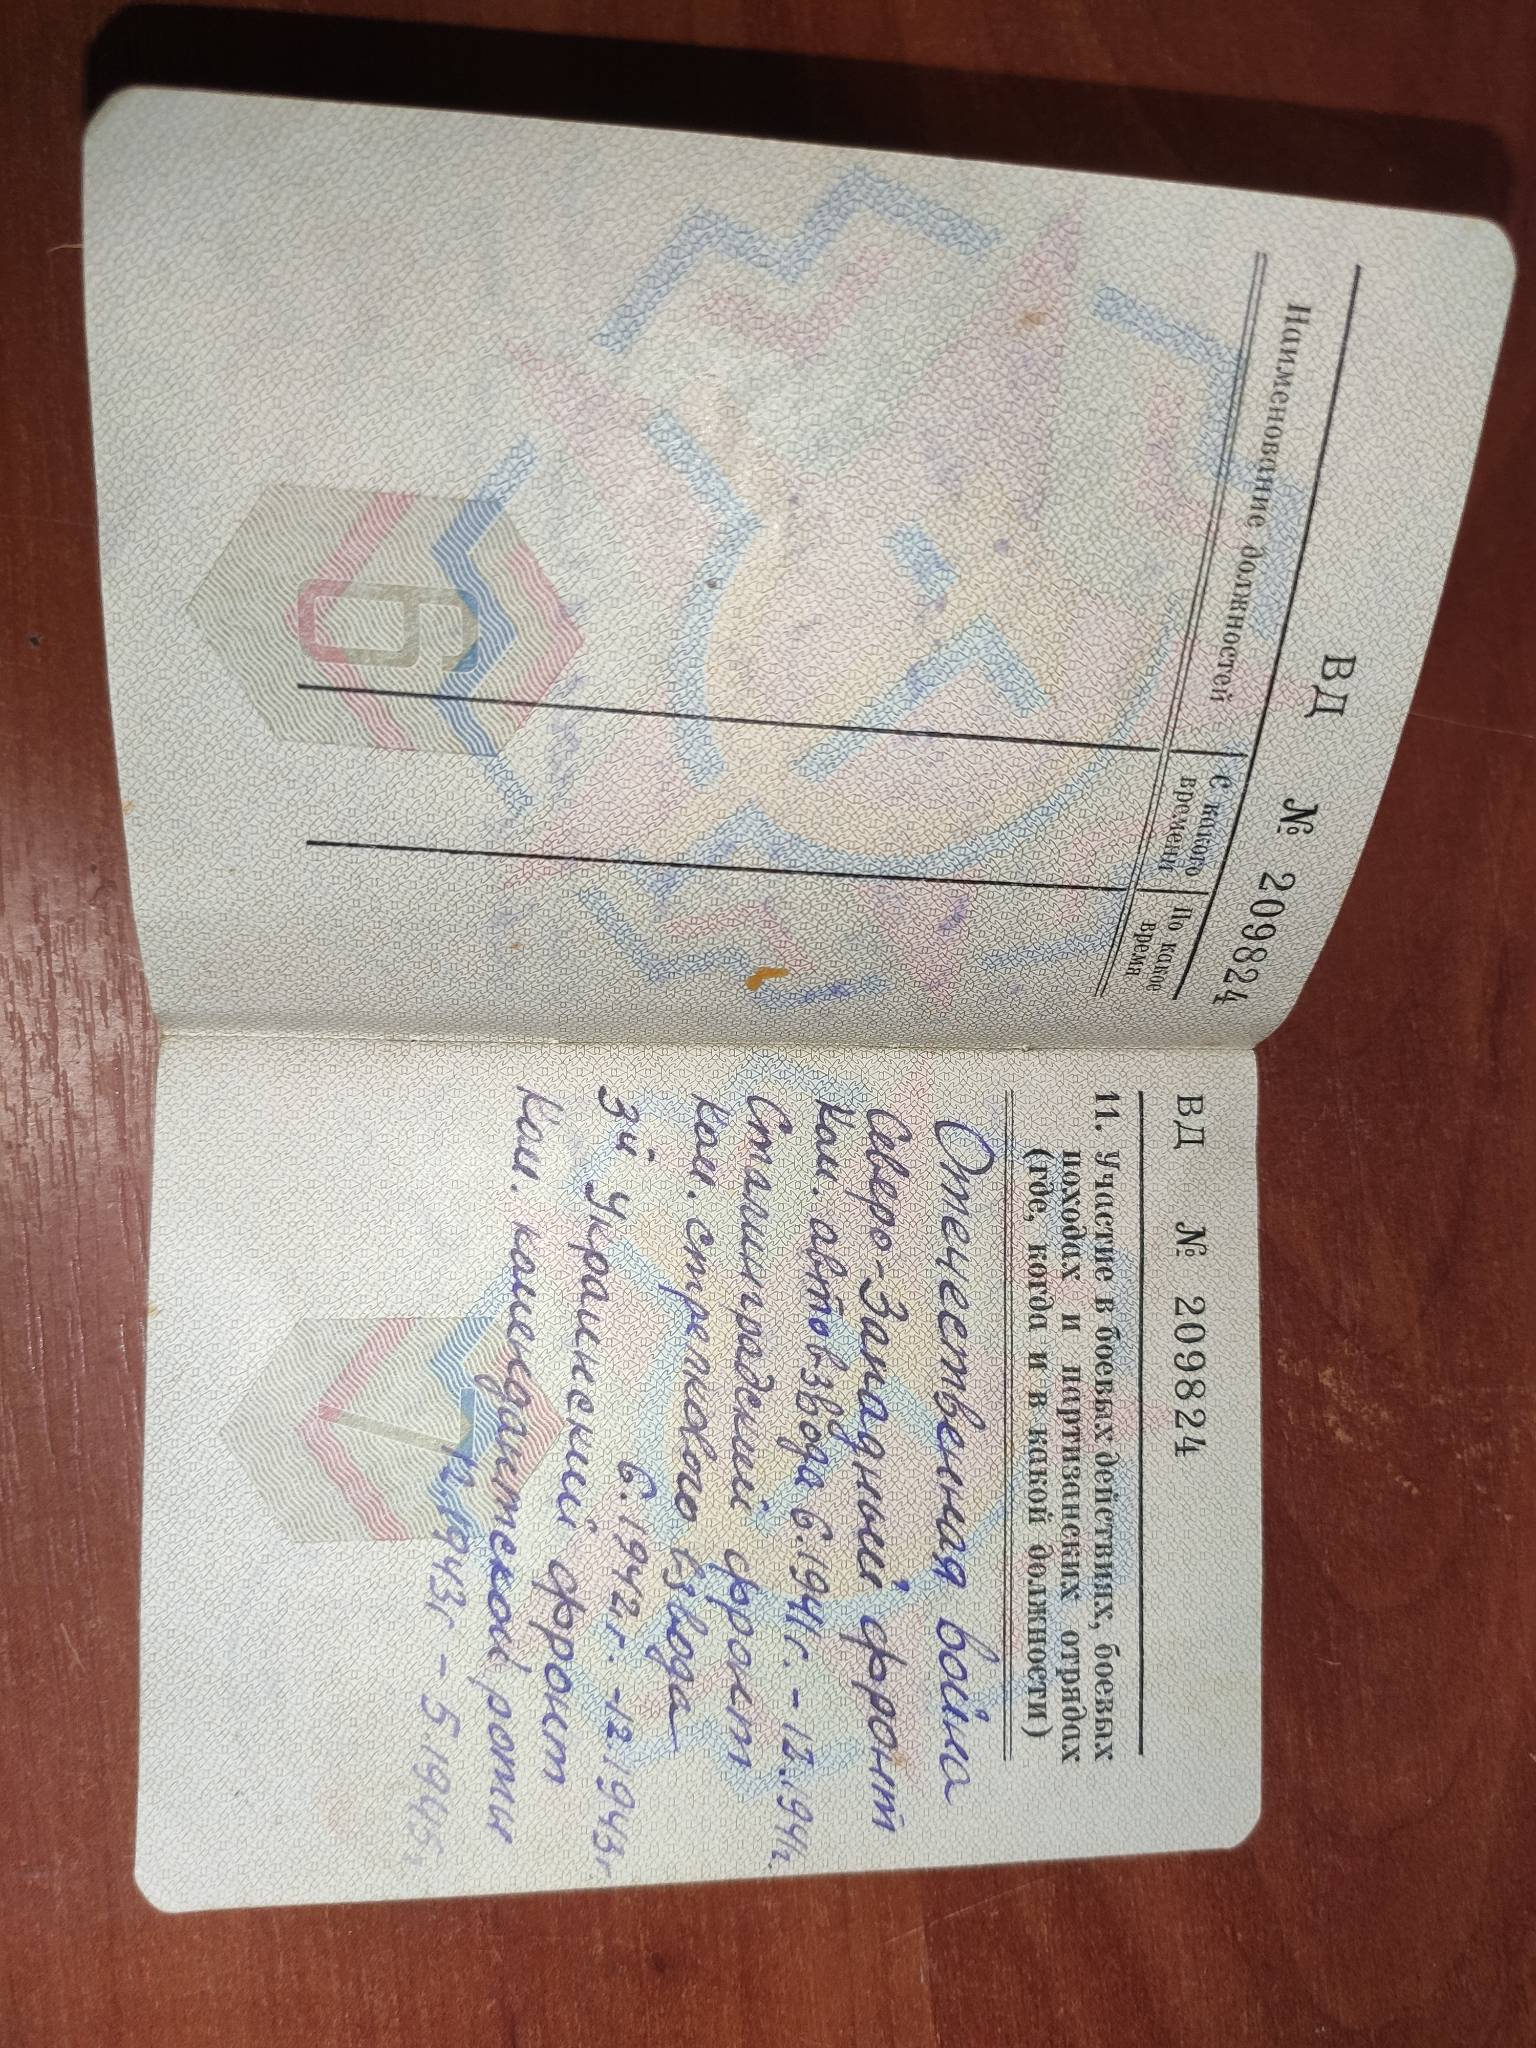 ВД № 209824
Наименование должностей
С какого времени
По какое время
6
ВД № 209824
11. Участие в боевых действиях, боевых
походах и партизанских отрядах
(где, когда и в какой должности)
Отечественная война
Северо-Западный фронт
Ком. автовзвода 6.1941г. - 12.1941г.
Сталинградский фронт
Ком. стрелкового взвода
6.1942г. - 12.1943г
3й Украинский фронт
Ком. комендантской роты
12.1943г - 5.1945г
7